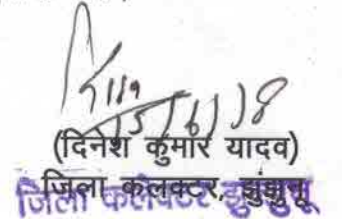 15/6/18
(दिनेश कुमार यादव)
जिला कलक्टर, झुंझुनू
जिला कलेक्टर झुझुनू